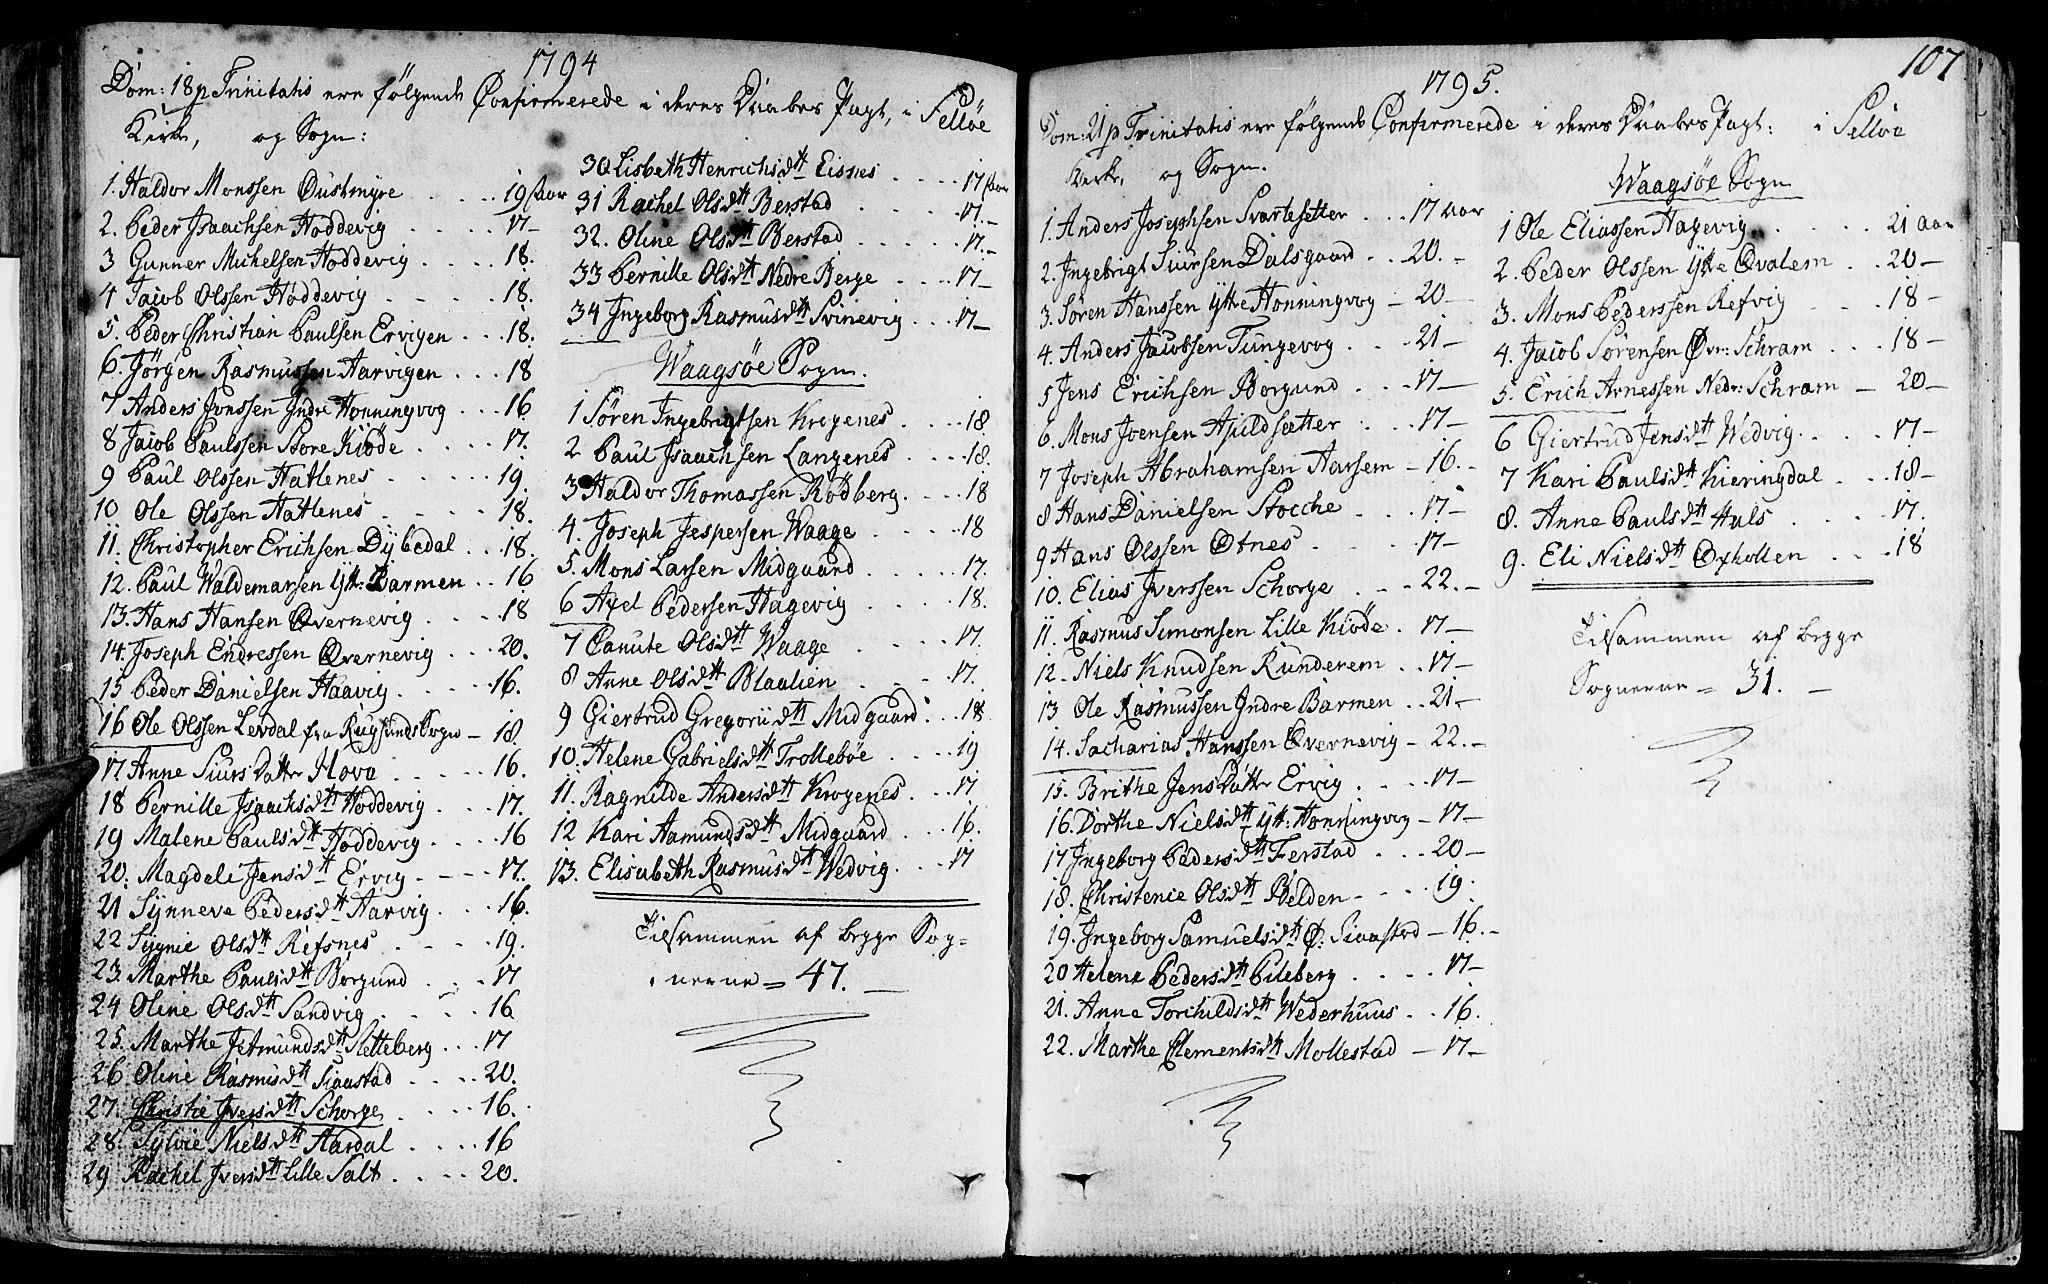 1794
Dom: 18 p Trinitatis ere følgende Confirmerede i deres Daabes Pagt, i Selløe
Kirke, og Sogn:
1. Haldor Monssen Oustmyre . . . 19 Aar
2. Peder Isaachsen Hoddevig . . . . 17 –
3 Gunner Michelsen Hoddevig . . . . 18.
4 Jacob Olssen Hoddevig . . . . 18.
5. Peder Christian Paulsen Ervigen . . . 18.
6. Jörgen Rasmussen Aarvigen . . . 18
7 Anders Jonssen Indre Honningvog . . . 16
8 Jacob Paulssen Store Kiöde . . . . 17.
9 Paul Olssen Hatlenes . . . . . 19.
10 Ole Olssen Hatlenes . . . . 18.
11. Christopher Erichsen Dybedal . . . 18.
12. Paul Waldemarsen Ytt: Barmen . . 16
13. Hans Hansen Overnevig . . . . 18
14. Joseph Endressen Overnevig . . . 20.
15 Peder Danielsen Haavig . . . . 16.
16 Ole Olssen Levdal fra Rugsunds Sogn – 18.
17 Anne Siurs Datter Hove . . . . . 16.
18 Pernille Isaachsdtt Hoddevig . . . 17.
19 Malene Paulsdtt Hoddevig . . . . 16
20. Magdeli Jensdtt Ervig – – – – 17.
21 Synneve Pedersdtt Aarvig . . . 16.
22 Sygnie Olsdtt Refsnes . . . . 19.
23. Marthe Paulsdtt Borgund . . . 17
24 Oline Olsdtt Sandvig . . . . 16
25. Marthe Jetmundsdtt Sletteberg . . . 17
26 Oline Rasmusdtt Siaastad . . . . 20.
27. Christie Iversdtt Schorge . . . . 16.
28. Sylvie Nielsdtt Aardal . . . . 16
29 Rachel Iversdtt Lille Salt . . . . 20.
30 Lisbeth Henrichsdtt Eisnes . . . . 17 Aar
31 Rachel Olsdtt Berstad . . . . 17. –
32. Oline Olsdtt Berstad . . . . . 17. –
33 Pernille Olsdtt Nedre Berge . . . . 17 –
34 Ingeborg Rasmusdtt Svinevig . . . 17 –
Waagsöe Sogn.
1 Sören Ingebrigtsen Krogenes . . . . 18.
2 Paul Isaachsen Langenes . . . . 18.
3 Haldor Thomassen Rödberg . . . . 18
4. Joseph Jespersen Waage . . . . 18
5. Mons Larsen Midgaard . . . . 17.
6 Axel Pedersen Hagevig . . . . 18.
7 Canute Olsdtt Waage . . . 17.
8 Anne Olsdtt Blaalien . . . . 17.
9 Giertrud Gregoriidtt Midgaard . . . 18
10. Helene Gabrielsdtt Trollebøe . . . . 19
11. Ragnilde Andersdtt Krogenes . . . 17
12 Kari Aamundsdtt Midgaard . . . 16.
13. Elisabeth Rasmusdtt Wedvig . . . 17
Tilsammen af begge Sog=
nerne = 47. –
107
1795.
Dom: 21 p Trinitatis ere følgende Confirmerede i deres Daabes Pagt: i Selløe
Kirke, og Sogn.
1. Anders Josephsen Svartesetter . . . 17 Aar
2. Ingebrigt Siursen Dalsgaard . . . 20. –
3. Søren Hanssen Ytte Honningvog – 20 –
4. Anders Jacobsen Tungevog . . . 21 –
5 Jens Erichsen Borgund . . . 17 –
6. Mons Joensen Apildsetter . . . 17 –
7 Joseph Abrahamsen Aarsem – 16. –
8 Hans Danielsen Stocche . . . 17 –
9 Hans Olssen Otnes . . . . 17 –
10. Elias Iverssen Schorge . . . 22. –
11. Rasmus Simonsen Lille Kiöde . 17 –
12. Niels Knudsen Runderem . . 17 –
13 Ole Rasmussen Indre Barmen . . 21 –
14. Sacharias Hanssen Overnevig – 22. –
15. Brithe Jens Datter Ervig . . . . 17 –
16. Dorthe Nielsdtt Ytt: Honningvog – 17 –
17 Ingeborg Pedersdtt Ferstad . . . 20 –
18. Christence Olsdtt Belden – . . . 19.
19. Ingeborg Samuelsdtt Ø: Siaastad – 16. –
20 Helene Pedersdtt Pileberg . . . . 17 –
21. Anne Torchildsdtt Wederhuus . . . 16.
22. Marthe Clementsdtt Mollestad – 17 –
Waagsøe Sogn
1 Ole Eliassen Hagevig . . . . . 21 Aar
2. Peder Olssen Ytre Qvalem . . 20 –
3. Mons Pederssen Refvig . . . . 18 –
4. Jacob Sörensen Øvr: Schram . . . 18 –
5. Erich Arnessen Nedr: Schram – 20 –
6 Giertrud Jensdtt Wedvig . . . . 17 –
7 Kari Paulsdtt Kieringdal . . . . 18 –
8. Anne Paulsdtt Huls . . . . 17.
9. Eli Nielsdtt Oxholten . . . 18
Tilsammen af begge
Sognerne = 31. –